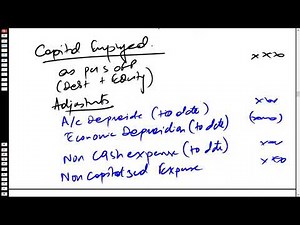 Capital Employed. xxx
as per SOFP
(Debt + Equity)
Adjustments
A/c Depreciate (to date) xxx
Economic Depreciation (to date) (xxx)
Non Cash expense (to date) xxx
Non Capitalized Expense xxx